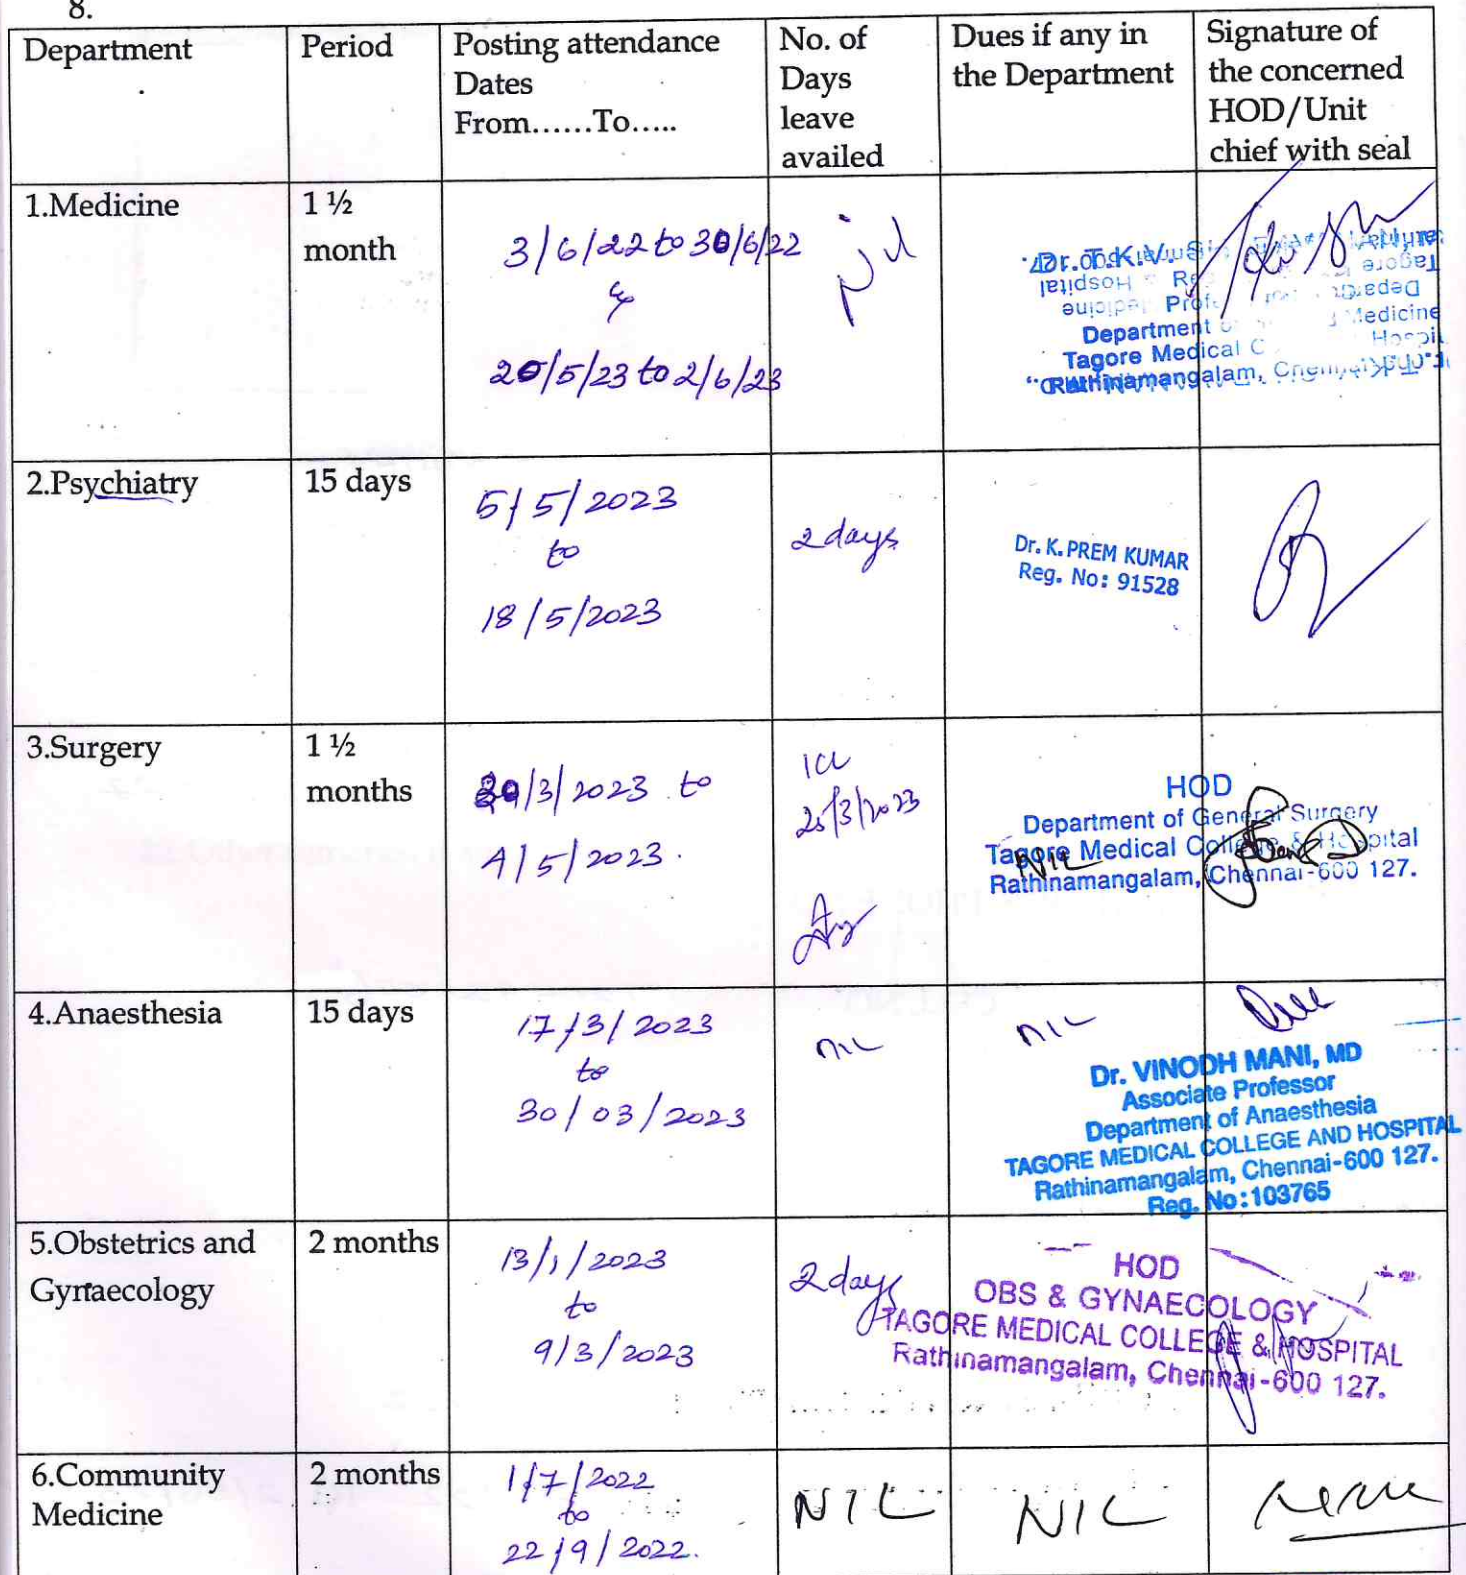 8.
Department
Period
Posting attendance
Dates
From......To.....
No. of
Days
leave
availed
Dues if any in
the Department
Signature of
the concerned
HOD/Unit
chief with seal
1.Medicine
1 ½
month
3/6/22 to 30/6/22
&
20/5/23 to 2/6/23
Nil
Dr. T.K.V.
Department
Medicine
Tagore Medical
Rathinamangalam,
2.Psychiatry
15 days
5/5/2023
to
18/5/2023
2 days
Dr. K. PREM KUMAR
Reg. No: 91528
3.Surgery
1 ½
months
/3/2023 to
4/5/2023.
1CL
25/3/2023
NIL
HOD
Department of General Surgery
Tagore Medical College & Hospital
Rathinamangalam, Chennai-600 127.
4.Anaesthesia
15 days
17/3/2023
to
30/03/2023
NIL
NIL
Dr. VINODH MANI, MD
Associate Professor
Department of Anaesthesia
TAGORE MEDICAL COLLEGE AND HOSPITAL
Rathinamangalam, Chennai-600 127.
Reg. No:103765
5.Obstetrics and
Gynaecology
2 months
13/1/2023
to
9/3/2023
2 days
HOD
OBS & GYNAECOLOGY
TAGORE MEDICAL COLLEGE & HOSPITAL
Rathinamangalam, Chennai-600 127.
6.Community
Medicine
2 months
1/7/2022
to
22/9/2022.
NIL
NIL